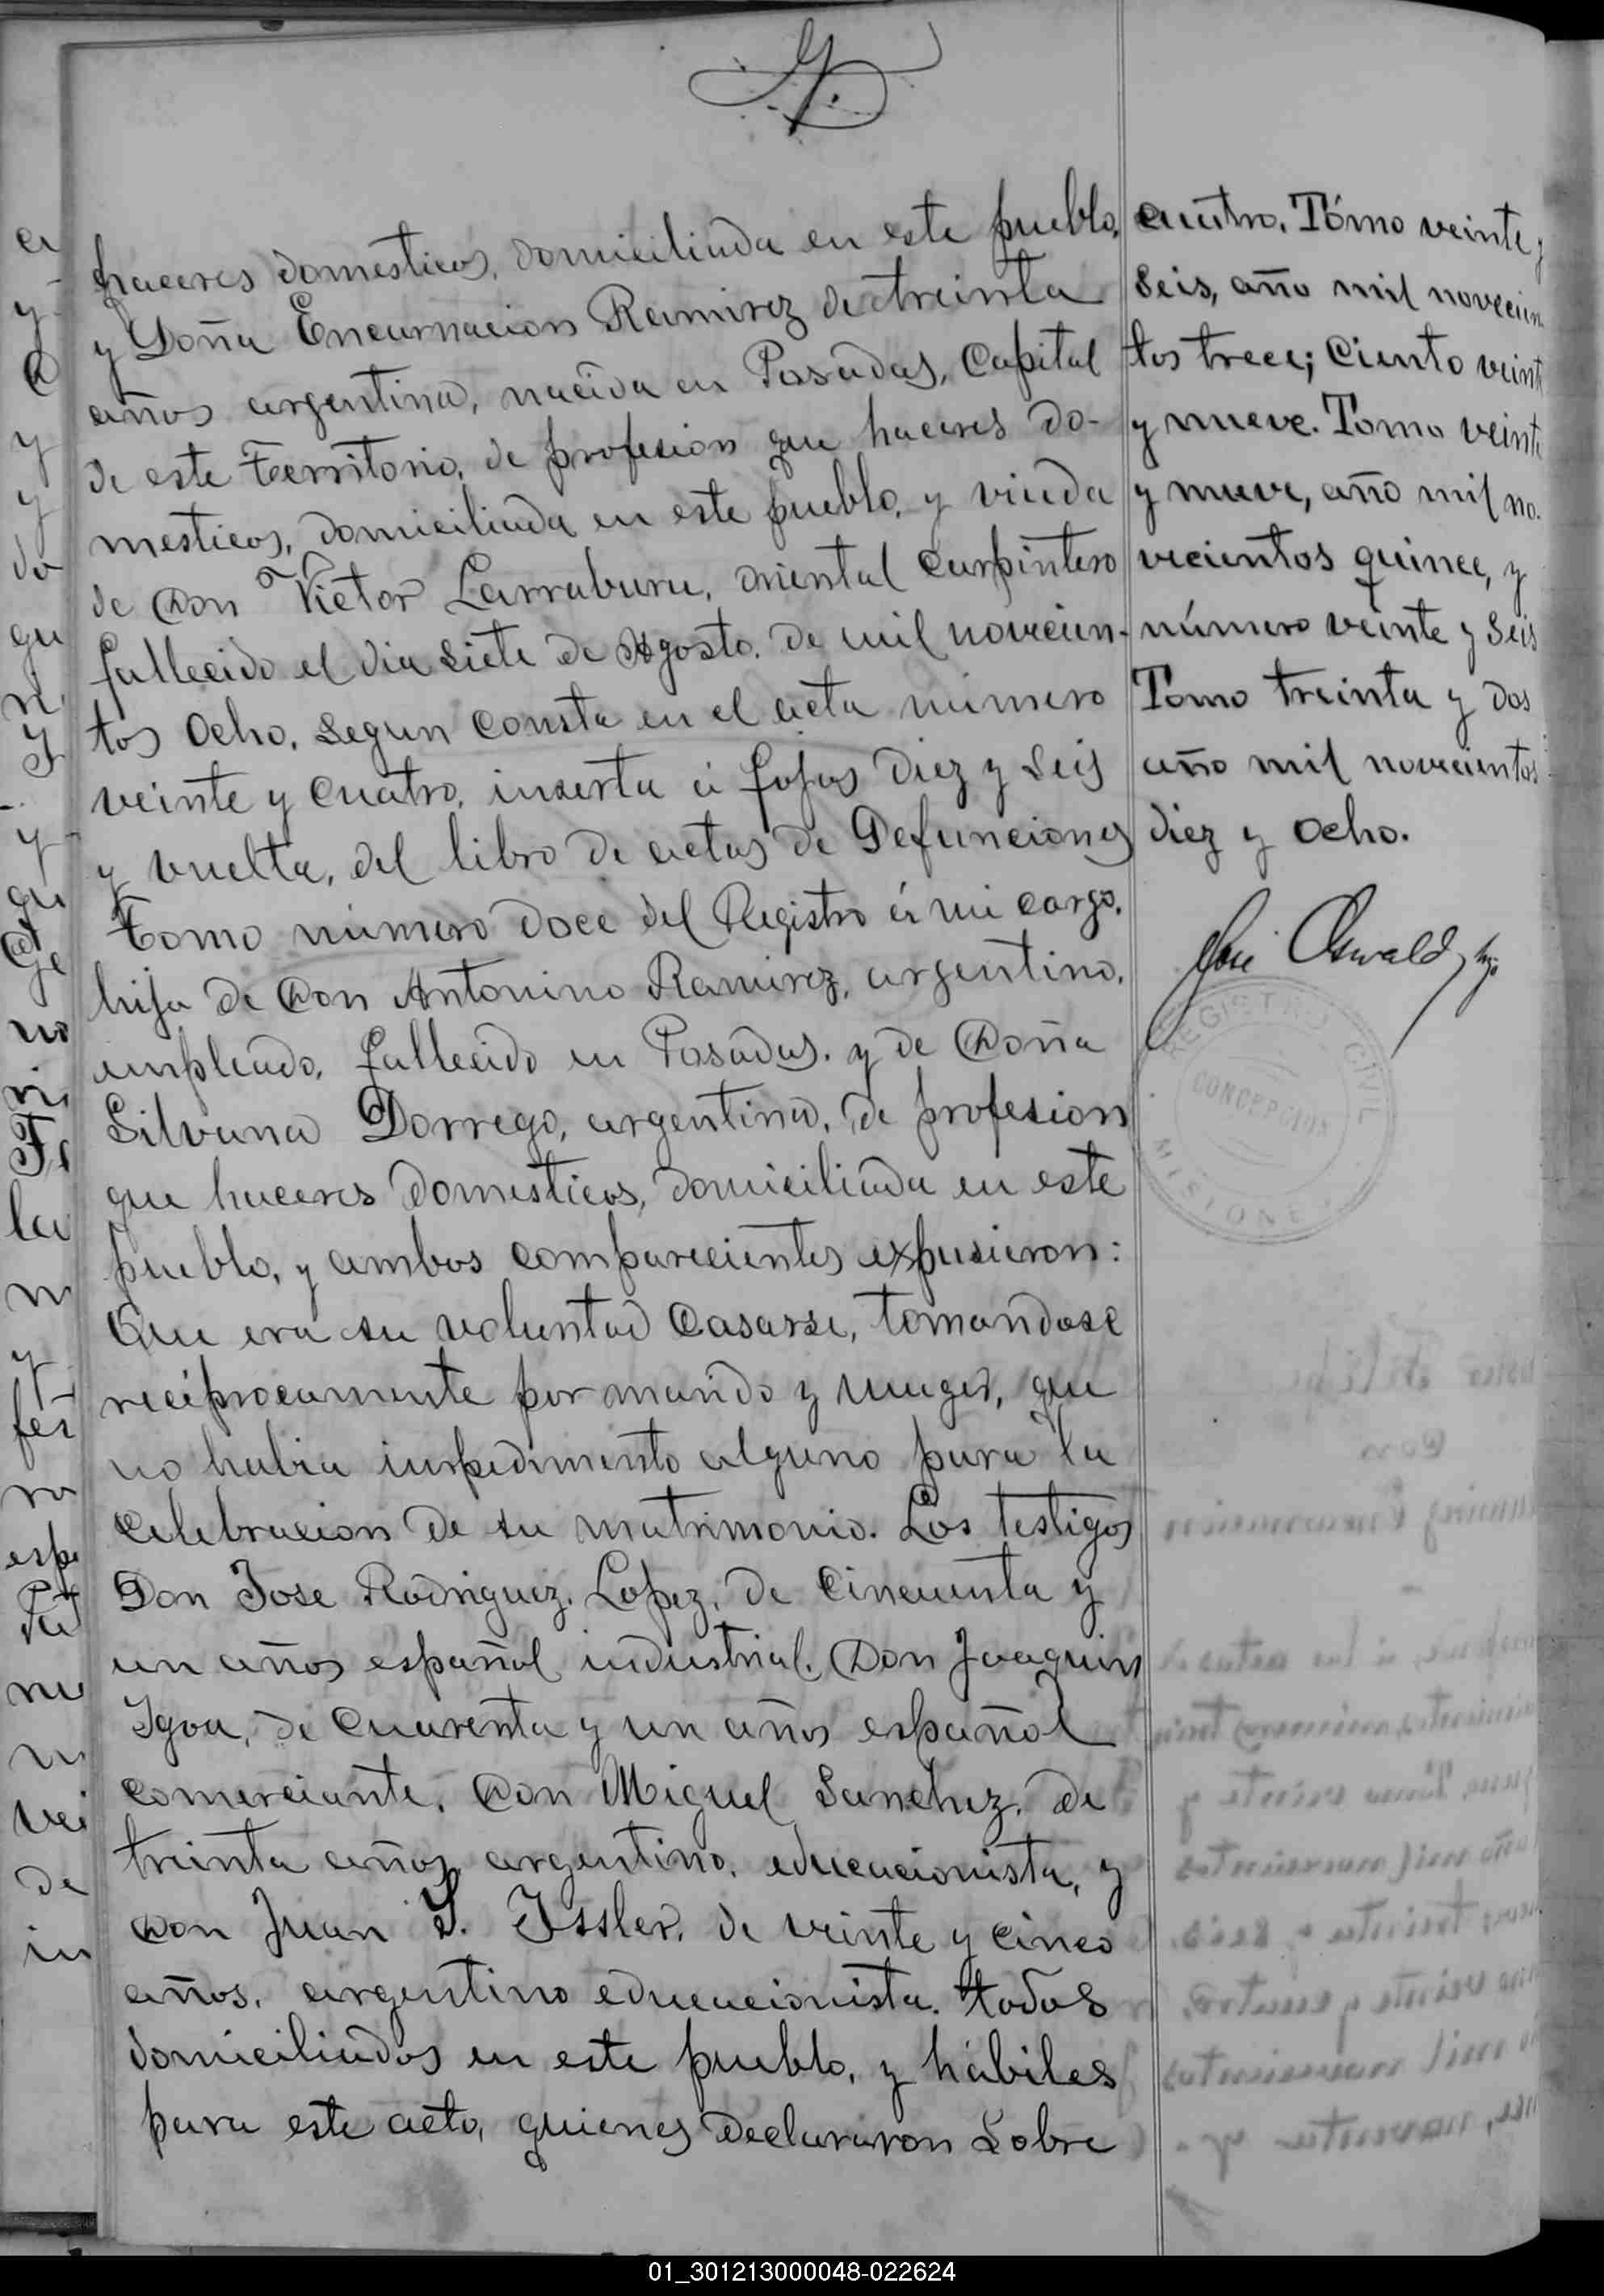 haceres domesticos, domiciliada en este pueblo,
y Doña Encarnacion Ramirez de treinta
años argentina, nacida en Posadas, Capital
de este Territorio, de profesion que haceres do-
mesticos, domiciliada en este pueblo, y viuda
de Don Victor Larraburu, oriental carpintero
fallecido el dia siete de Agosto de mil novecien-
tos ocho, segun consta en el acta número
veinte y cuatro, inserta á fojas diez y seis
y vuelta, del libro de actas de Defunciones
Tomo número doce del Registro á mi cargo,
hija de Don Antonino Ramirez, argentino,
empleado, fallecido en Posadas, y de Doña
Silvana Dorrego, argentina, de profesion
que haceres domesticos, domiciliada en este
pueblo, y ambos comparecientes expusieron:
Que era su voluntad casarse, tomandose
reciprocamente por marido y muger, que
no habia impedimento alguno para la
celebracion de su matrimonio. Los testigos
Don Jose Rodriguez Lopez, de cincuenta y
un años español industrial, Don Joaquin
Igoa, de cuarenta y un años español
comerciante, Don Miguel Sanchez, de
treinta años argentino, educacionista, y
Don Juan S. Issler, de veinte y cinco
años, argentino educacionista, todos
domiciliados en este pueblo, y hábiles
para este acto, quienes declararon sobre
cuatro. Tómo veinte y
seis, año mil novecien
tos trece; Ciento veinte
y nueve. Tomo veinte
y nueve, año mil no-
vecientos quince, y
número veinte y seis
Tomo treinta y dos
año mil novecientos
diez y ocho.
José Oswald, hijo
REGISTRO CIVIL
CONCEPCION
MISIONES
01_301213000048-022624